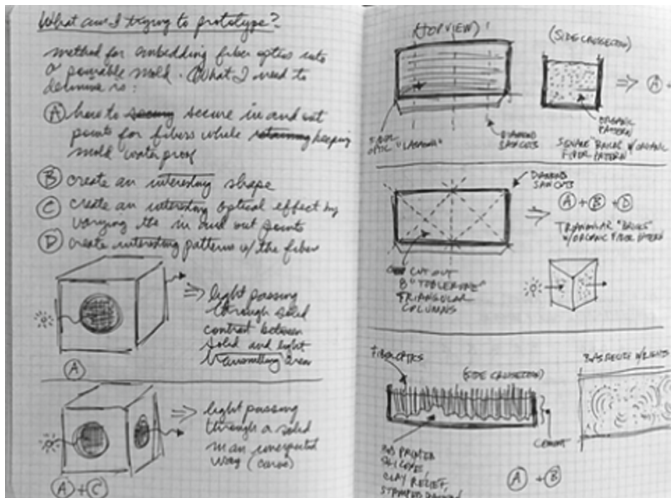 What am I trying to prototype?
method for embedding fiber optics into
a pourable mold. What I need to
determine is:
A how to secure in and out
points for fibers while keeping
mold water proof
B create an interesting shape
C create an interesting optical effect by
varying the in and out points
D create interesting patterns w/ the fiber
⇒ light passing
through solid
contrast between
solid and light
transmitting area
A
⇒ light passing
through a solid
in an unexpected
way (curve)
A + C
(TOP VIEW)
FIBER
OPTIC "LASAGNA"
DIAMOND
SAW CUTS
(SIDE
⇒ A +
ORGANIC
PATTERN
SQUARE W/ ORGANIC
FIBER PATTERN
DIAMOND
SAW CUTS
⇒ A + B + D
TRIANGULAR
W/ ORGANIC FIBER PATTERN
CUT OUT
8 "TOBLERONE"
TRIANGULAR
COLUMNS
FIBER OPTICS
(SIDE
CEMENT
CLAY RELIEF,
A + B